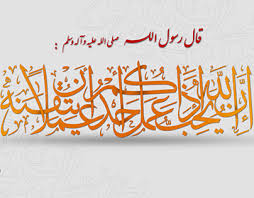 قال رسول الله صلی الله علیه وآله وسلم :
إن الله یحب إذا عمل أحدکم عملا أن یتقنه